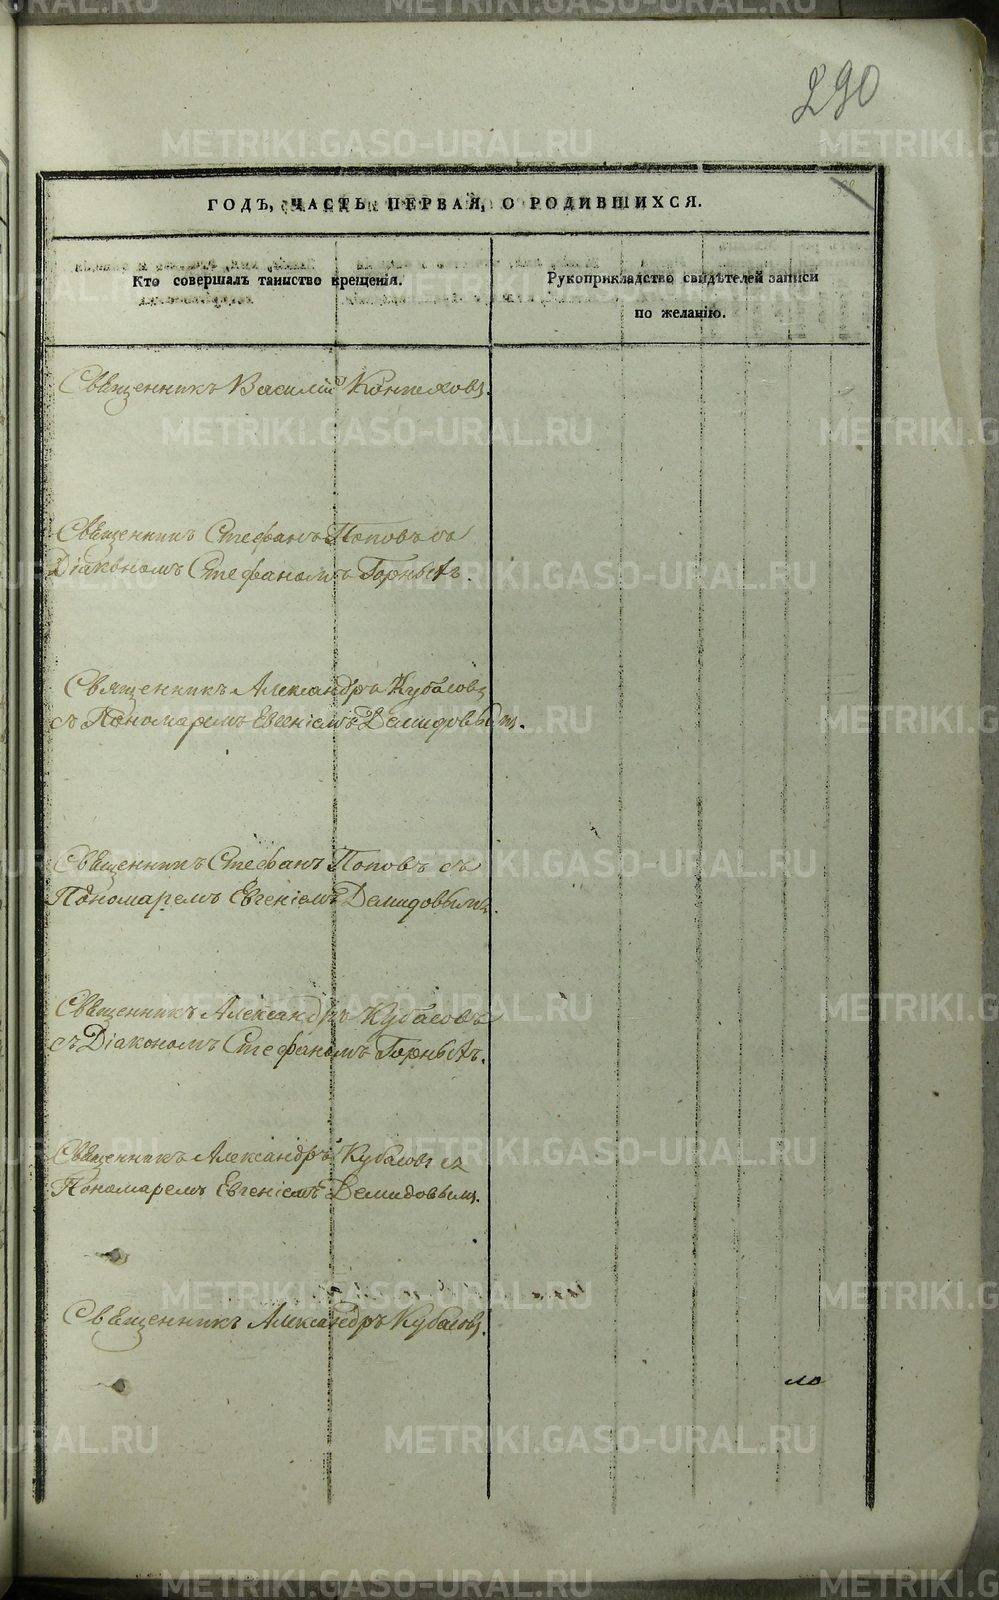 290
ГОДЪ, ЧАСТЬ ПЕРВАЯ, О РОДИВШИХСЯ.
Кто совершалъ таинство крещенія.
Рукоприкладство свидѣтелей записи
по желанію.
Священникъ Василій
Священникъ Стефанъ Поповъ съ
Діакономъ Стефаномъ Горныхъ.
Священникъ Александръ Кубасовъ
съ Пономаремъ Евгеніемъ Демидовымъ.
Священникъ Стефанъ Поповъ съ
Пономаремъ Евгеніемъ Демидовымъ.
Священникъ Александръ Кубасовъ
съ Діакономъ Стефаномъ Горныхъ.
Священникъ Александръ Кубасовъ съ
Пономаремъ Евгеніемъ Демидовымъ.
Священникъ Александръ Кубасовъ.
METRIKI.GASO-URAL.RU